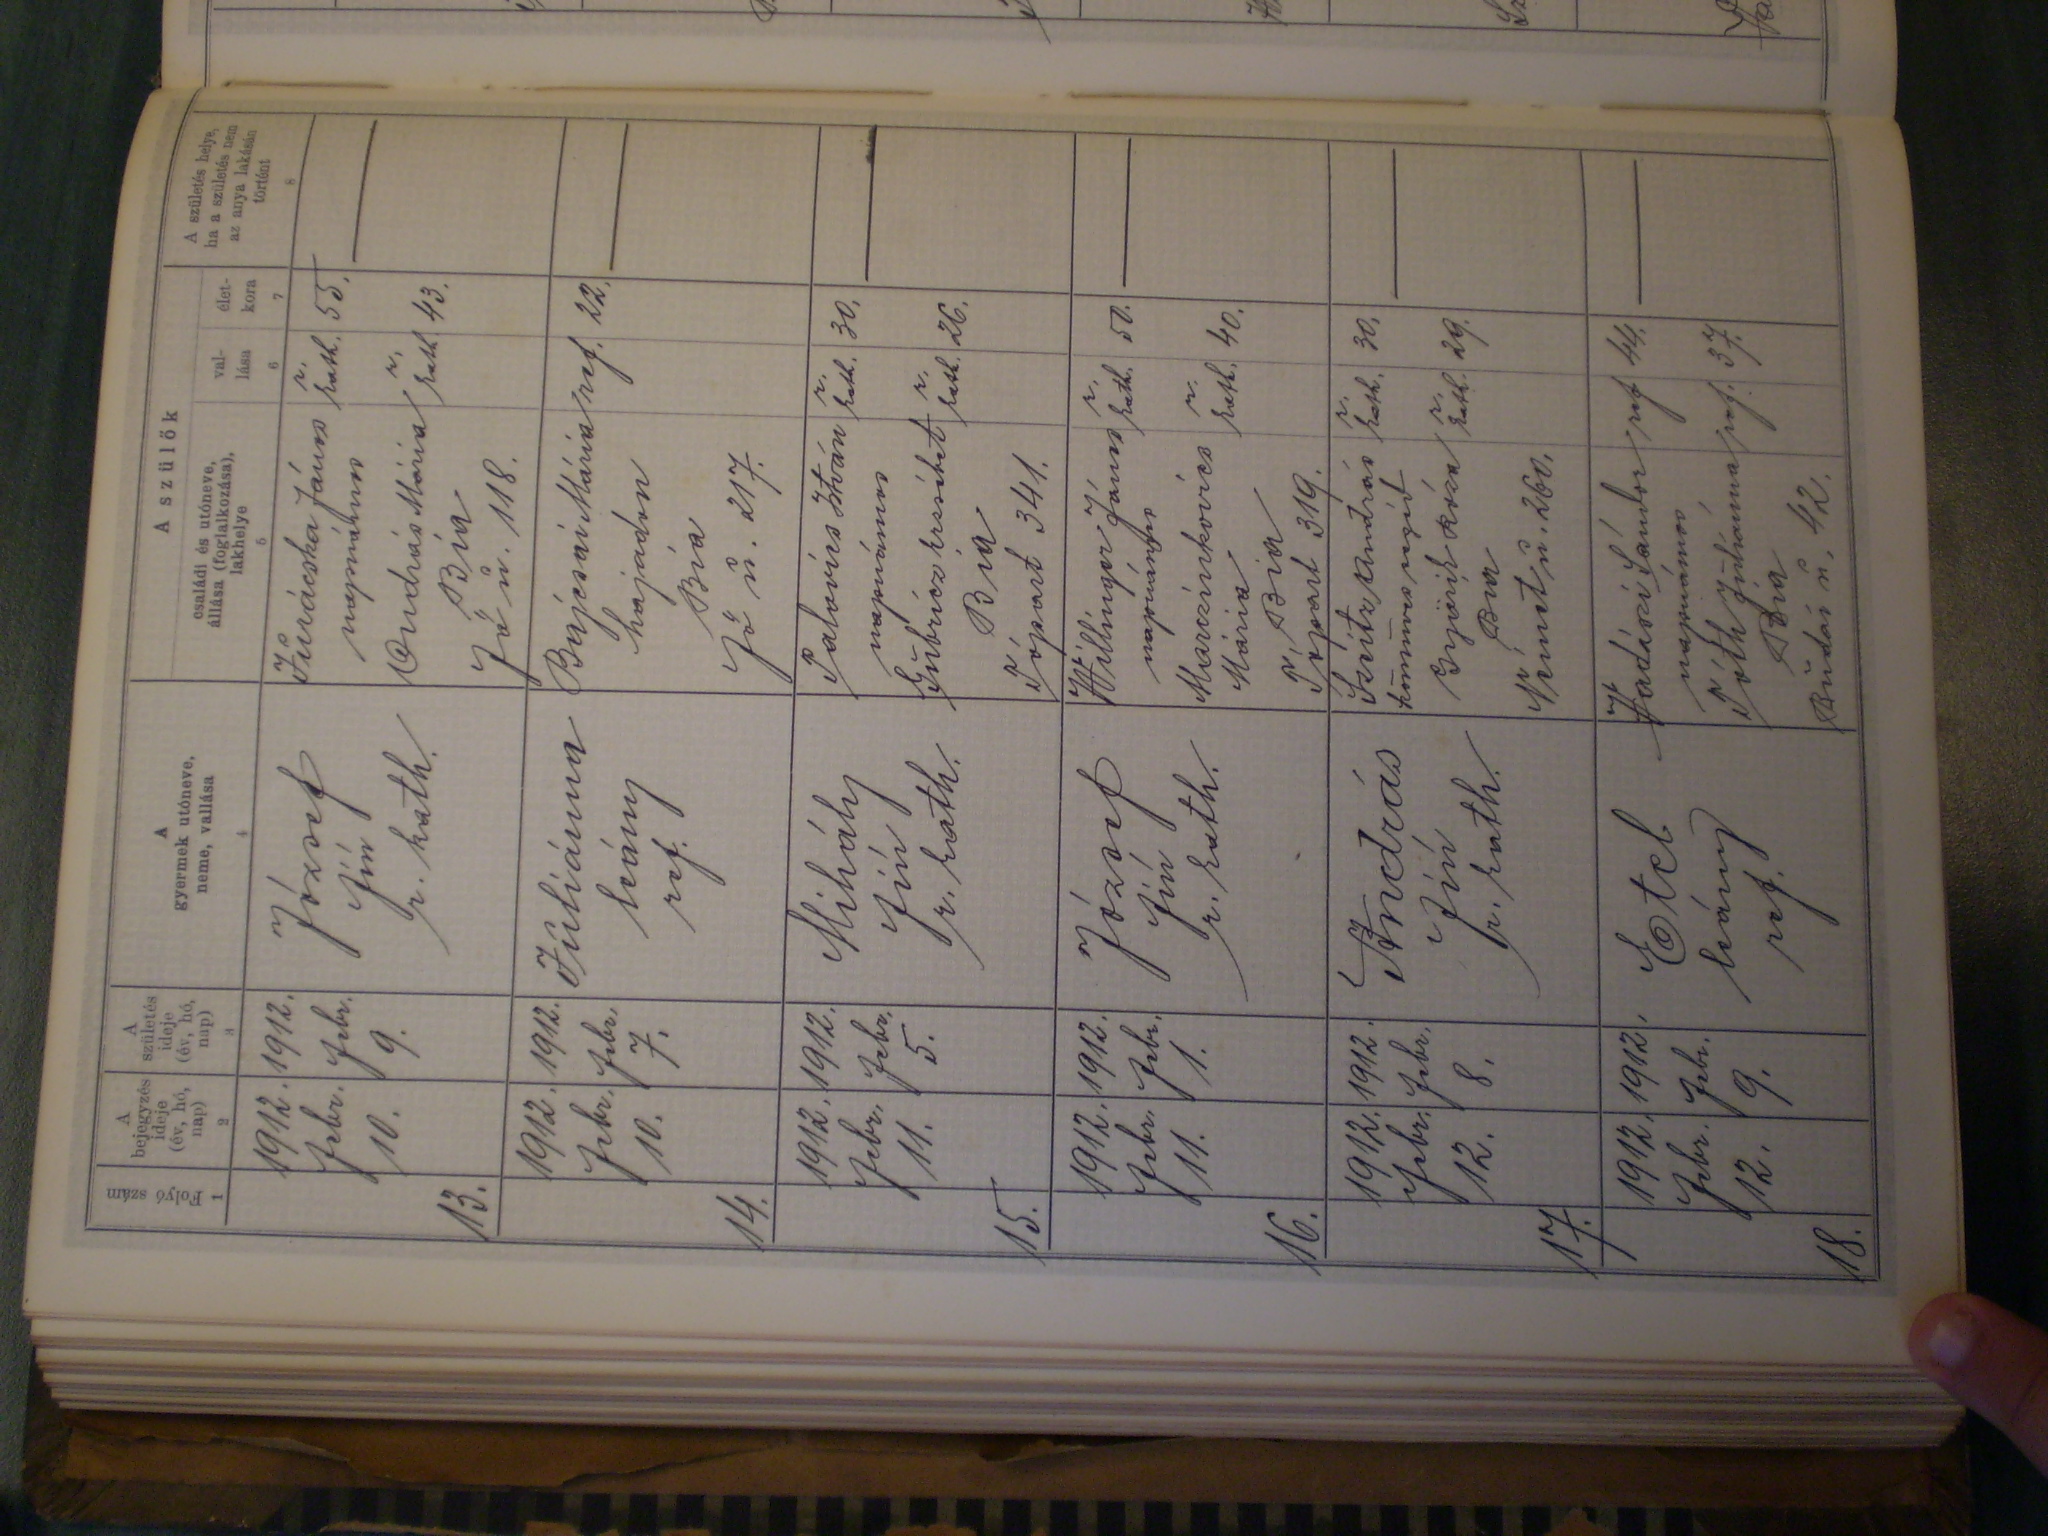 A szülők
Folyó szám
A bejegyzés ideje (év, hó, nap)
A születés ideje (év, hó, nap)
A gyermek utóneve, neme, vallása
családi és utóneve, állása (foglalkozása), lakhelye
vallása
életkora
A születés helye, ha a születés nem az anya lakásán történt
1
2
3
4
5
6
7
8
13.
1912. Febr. 10.
1912. Febr. 9.
József
fiú
r. kath.
János
napszámos
r. kath.
55.
András Mária
r. kath.
43.
Bia
Fő u. 118.
14.
1912. Febr. 10.
1912. Febr. 7.
Júliánna
leány
ref.
Bajcsai Mária
ref.
22.
hajadon
Bia
Fő u. 217.
15.
1912. Febr. 11.
1912. Febr. 5.
Mihály
fiú
r. kath.
Palovics István
r. kath.
30.
napszámos
Erzsébet
r. kath.
26.
Bia
Tópart 341.
16.
1912. Febr. 11.
1912. Febr. 1.
József
fiú
r. kath.
Willinger János
r. kath.
50.
napszámos
Marczinkovics
r. kath.
40.
Mária
Bia
Tópart 319.
17.
1912. Febr. 12.
1912. Febr. 8.
András
fiú
r. kath.
Szeitz András
r. kath.
30.
kőműves segéd
Róza
r. kath.
29.
Bia
Német u. 260.
18.
1912. Febr. 12.
1912. Febr. 9.
Etel
leány
ref.
Vadászi Sándor
ref.
44.
napszámos
Tóth Juliánna
ref.
37.
Bia
Budai u. 42.